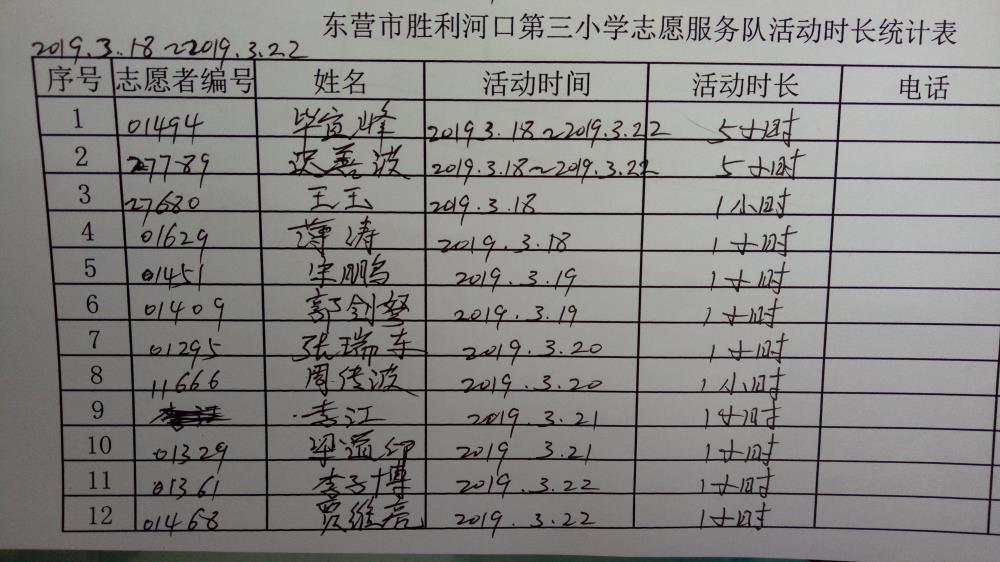 东营市胜利河口第三小学志愿服务队活动时长统计表
2019.3.18~2019.3.22
序号 志愿者编号 姓名 活动时间 活动时长 电话
1 01494 毕宣峰 2019.3.18~2019.3.22 5小时
2 27789 沈善波 2019.3.18~2019.3.22 5小时
3 27680 王玉 2019.3.18 1小时
4 01629 薄涛 2019.3.18 1小时
5 01451 宋鹏 2019.3.19 1小时
6 01409 郭剑 2019.3.19 1小时
7 01295 张瑞东 2019.3.20 1小时
8 11666 周传波 2019.3.20 1小时
9 李江 2019.3.21 1小时
10 01329 梁道印 2019.3.21 1小时
11 01361 李子博 2019.3.22 1小时
12 01468 贾维亮 2019.3.22 1小时